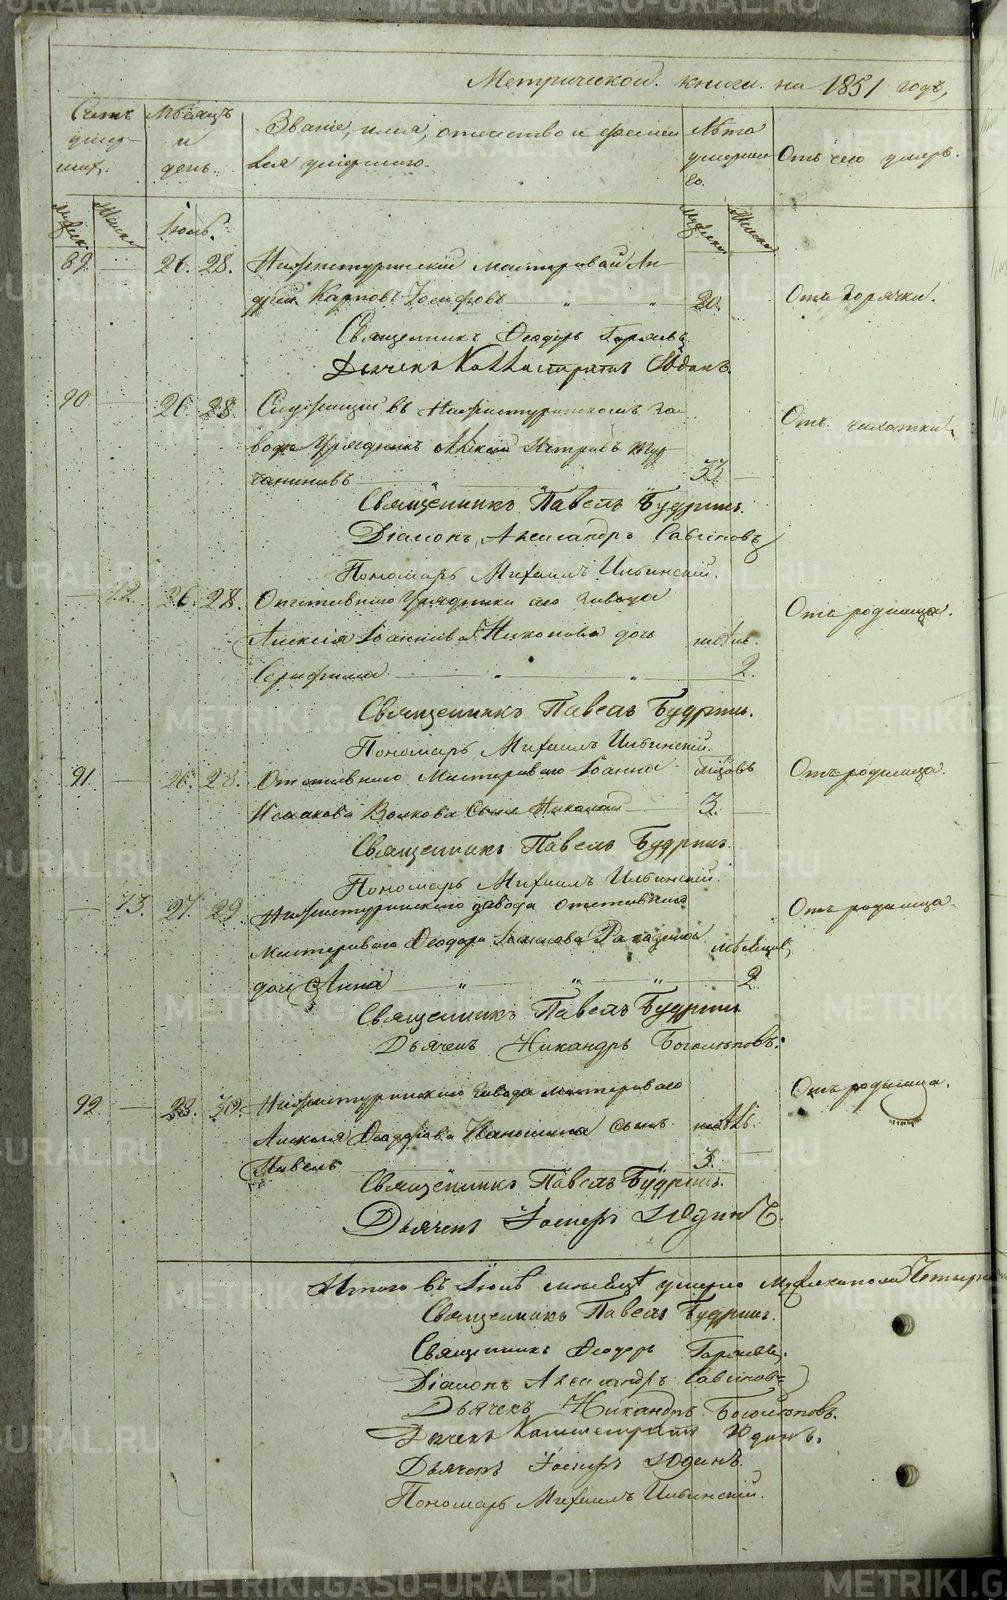 Метрической книги на 1851 годъ,
Счетъ умер-шихъ.
Мѣсяцъ и день.
Званіе, имя, отчество и фамилія умершаго.
Лѣта умершаго.
Отъ чего умеръ.
Мужеска Женска
Мужеска Женска
Іюль.
89. 26. 28. Нижнетуринскій мастеровой Ан-
дрей Карповъ 20. Отъ горячки.
Священникъ Ѳеодоръ
Дьячекъ Каллистратъ Юдинъ.
90 26. 28. Служащій въ Нижнетуринскомъ За-
водѣ Урядникъ Алексѣй Петровъ Тур- Отъ чахотки.
чаниновъ 33.
Священникъ Павелъ Будринъ.
Діаконъ Александръ Савиновъ
Пономарь Михаилъ Ильинскій.
72. 26. 28. Отставнаго Урядника сего Завода Отъ родимца.
Алексѣя Іоаннова Никонова дочь недѣль.
Серафима 2.
Священникъ Павелъ Будринъ.
Пономарь Михаилъ Ильинскій.
91. 26. 28. Отставнаго Мастероваго Іоанна Отъ родимца.
Исаакова Волкова Сынъ Николай 3.
Священникъ Павелъ Будринъ.
Пономарь Михаилъ Ильинскій.
73. 27. 29. Нижнетуринскаго завода отставнаго Отъ родимца.
Мастероваго Ѳеодора мѣсяцев,
дочь Анна " " " 2.
Священникъ Павелъ Будринъ
Дьячекъ Никандръ Боголѣповъ.
92. 28. 30. Нижнетуринскаго Завода мастероваго Отъ родимца.
Алексѣя Ѳеодорова сынъ недѣль.
Павелъ 3.
Священникъ Павелъ Будринъ.
Дьячекъ Іосифъ Юдинъ.
Итого въ Іюлѣ мѣсяцѣ умерло Мужеска пола
Священникъ Павелъ Будринъ.
Священникъ Ѳеодоръ
Діаконъ Александръ Савиновъ
Дьячекъ Никандръ Боголѣповъ.
Дьячекъ Каллистратъ Юдинъ.
Дьячекъ Іосифъ Юдинъ.
Пономарь Михаилъ Ильинскій.
METRIKI.GASO-URAL.RU